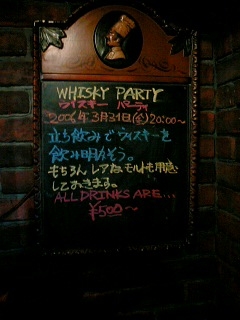 WHISKY PARTY
ウイスキー パーティ
2006年 3月31日(金)20:00〜
立ち飲みでウイスキーを
飲み明かそう。
もちろん レアな モルトも用意
しておきます。
ALL DRINKS ARE...
¥500〜